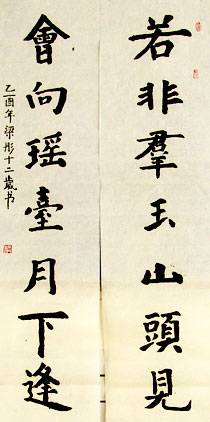 若非羣玉山頭見
會向瑶臺月下逢
乙酉年梁彤十二歲书